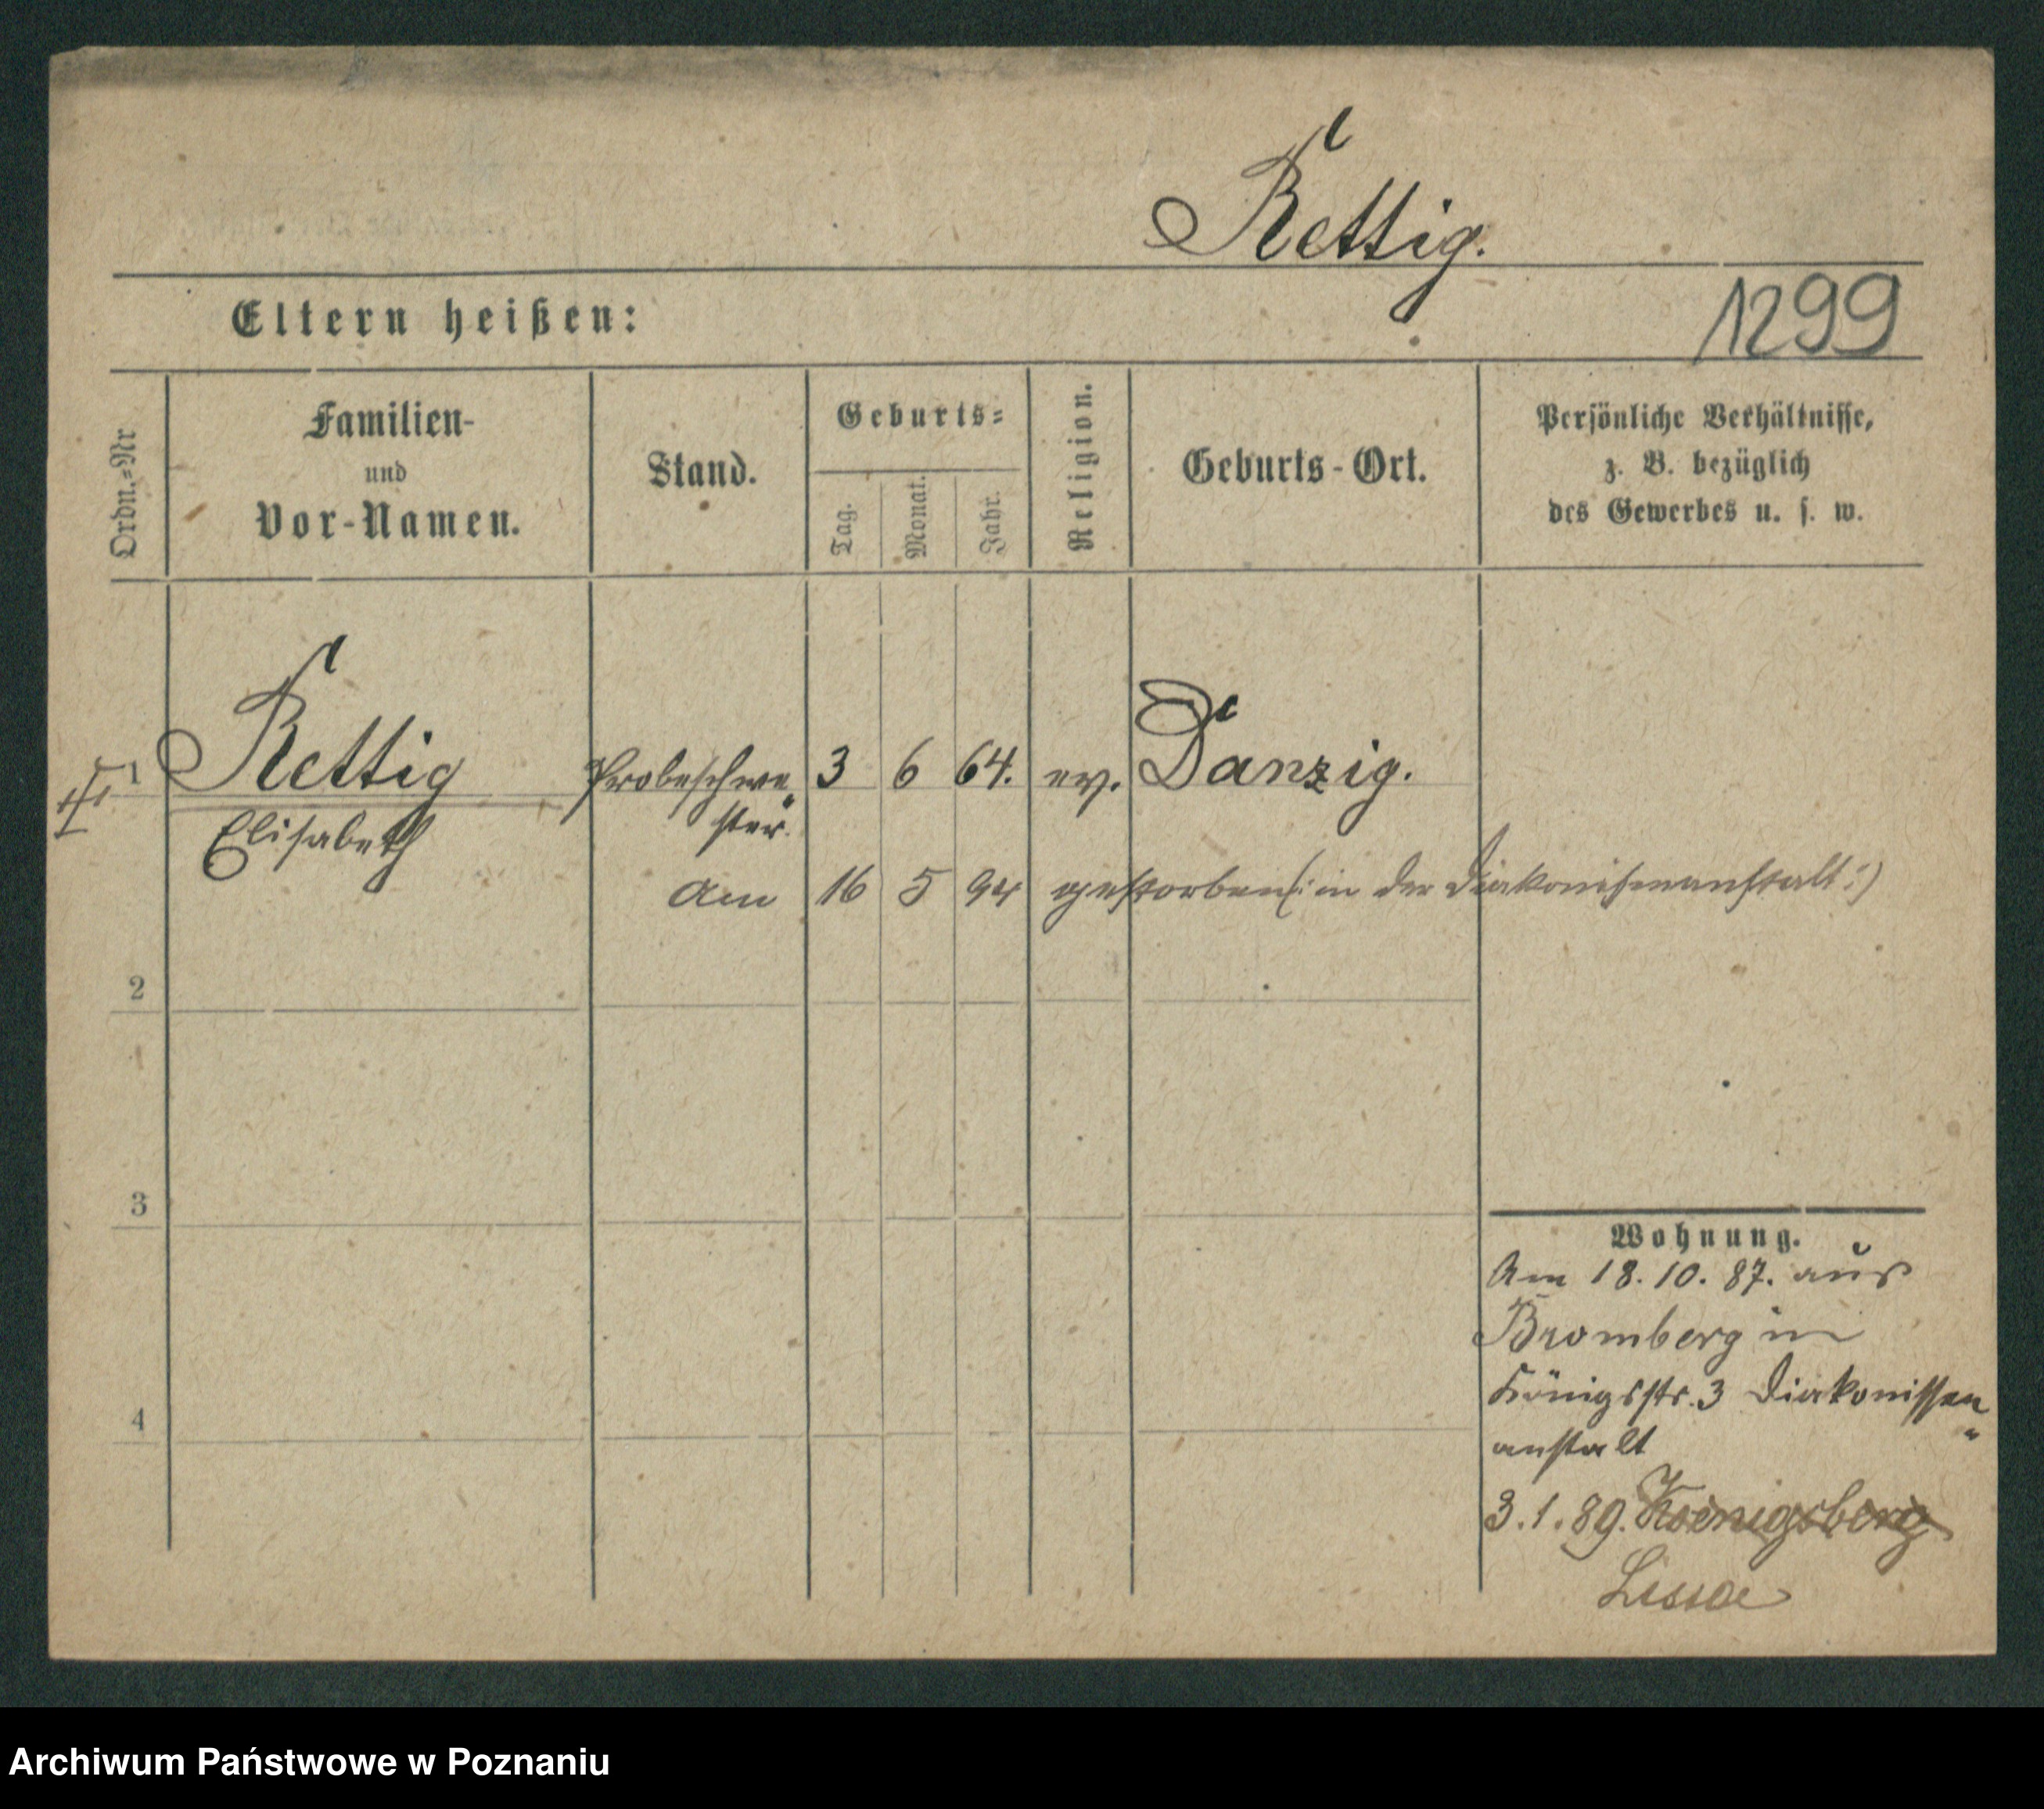 Rettig.
Eltern heißen:
1299
Ordn.=Nr
Familien-
und
Vor-Namen.
Stand.
Geburts=
Tag.
Monat.
Jahr.
Religion.
Geburts-Ort.
Persönliche Verhältnisse,
z. B. bezüglich
des Gewerbes u. s. w.
1 Rettig Probeschwe„ 3 6 64. ev. Danzig.
Elisabeth ster.
Am 16 5 94 gestorben (: in der Diakonissenanstalt :)
2
3
4
Wohnung.
Am 18. 10. 87. aus
Bromberg in
Königsstr. 3 Diakonissen„
anstalt
3. 1. 89. Koenigsberg
Lissa
Archiwum Państwowe w Poznaniu